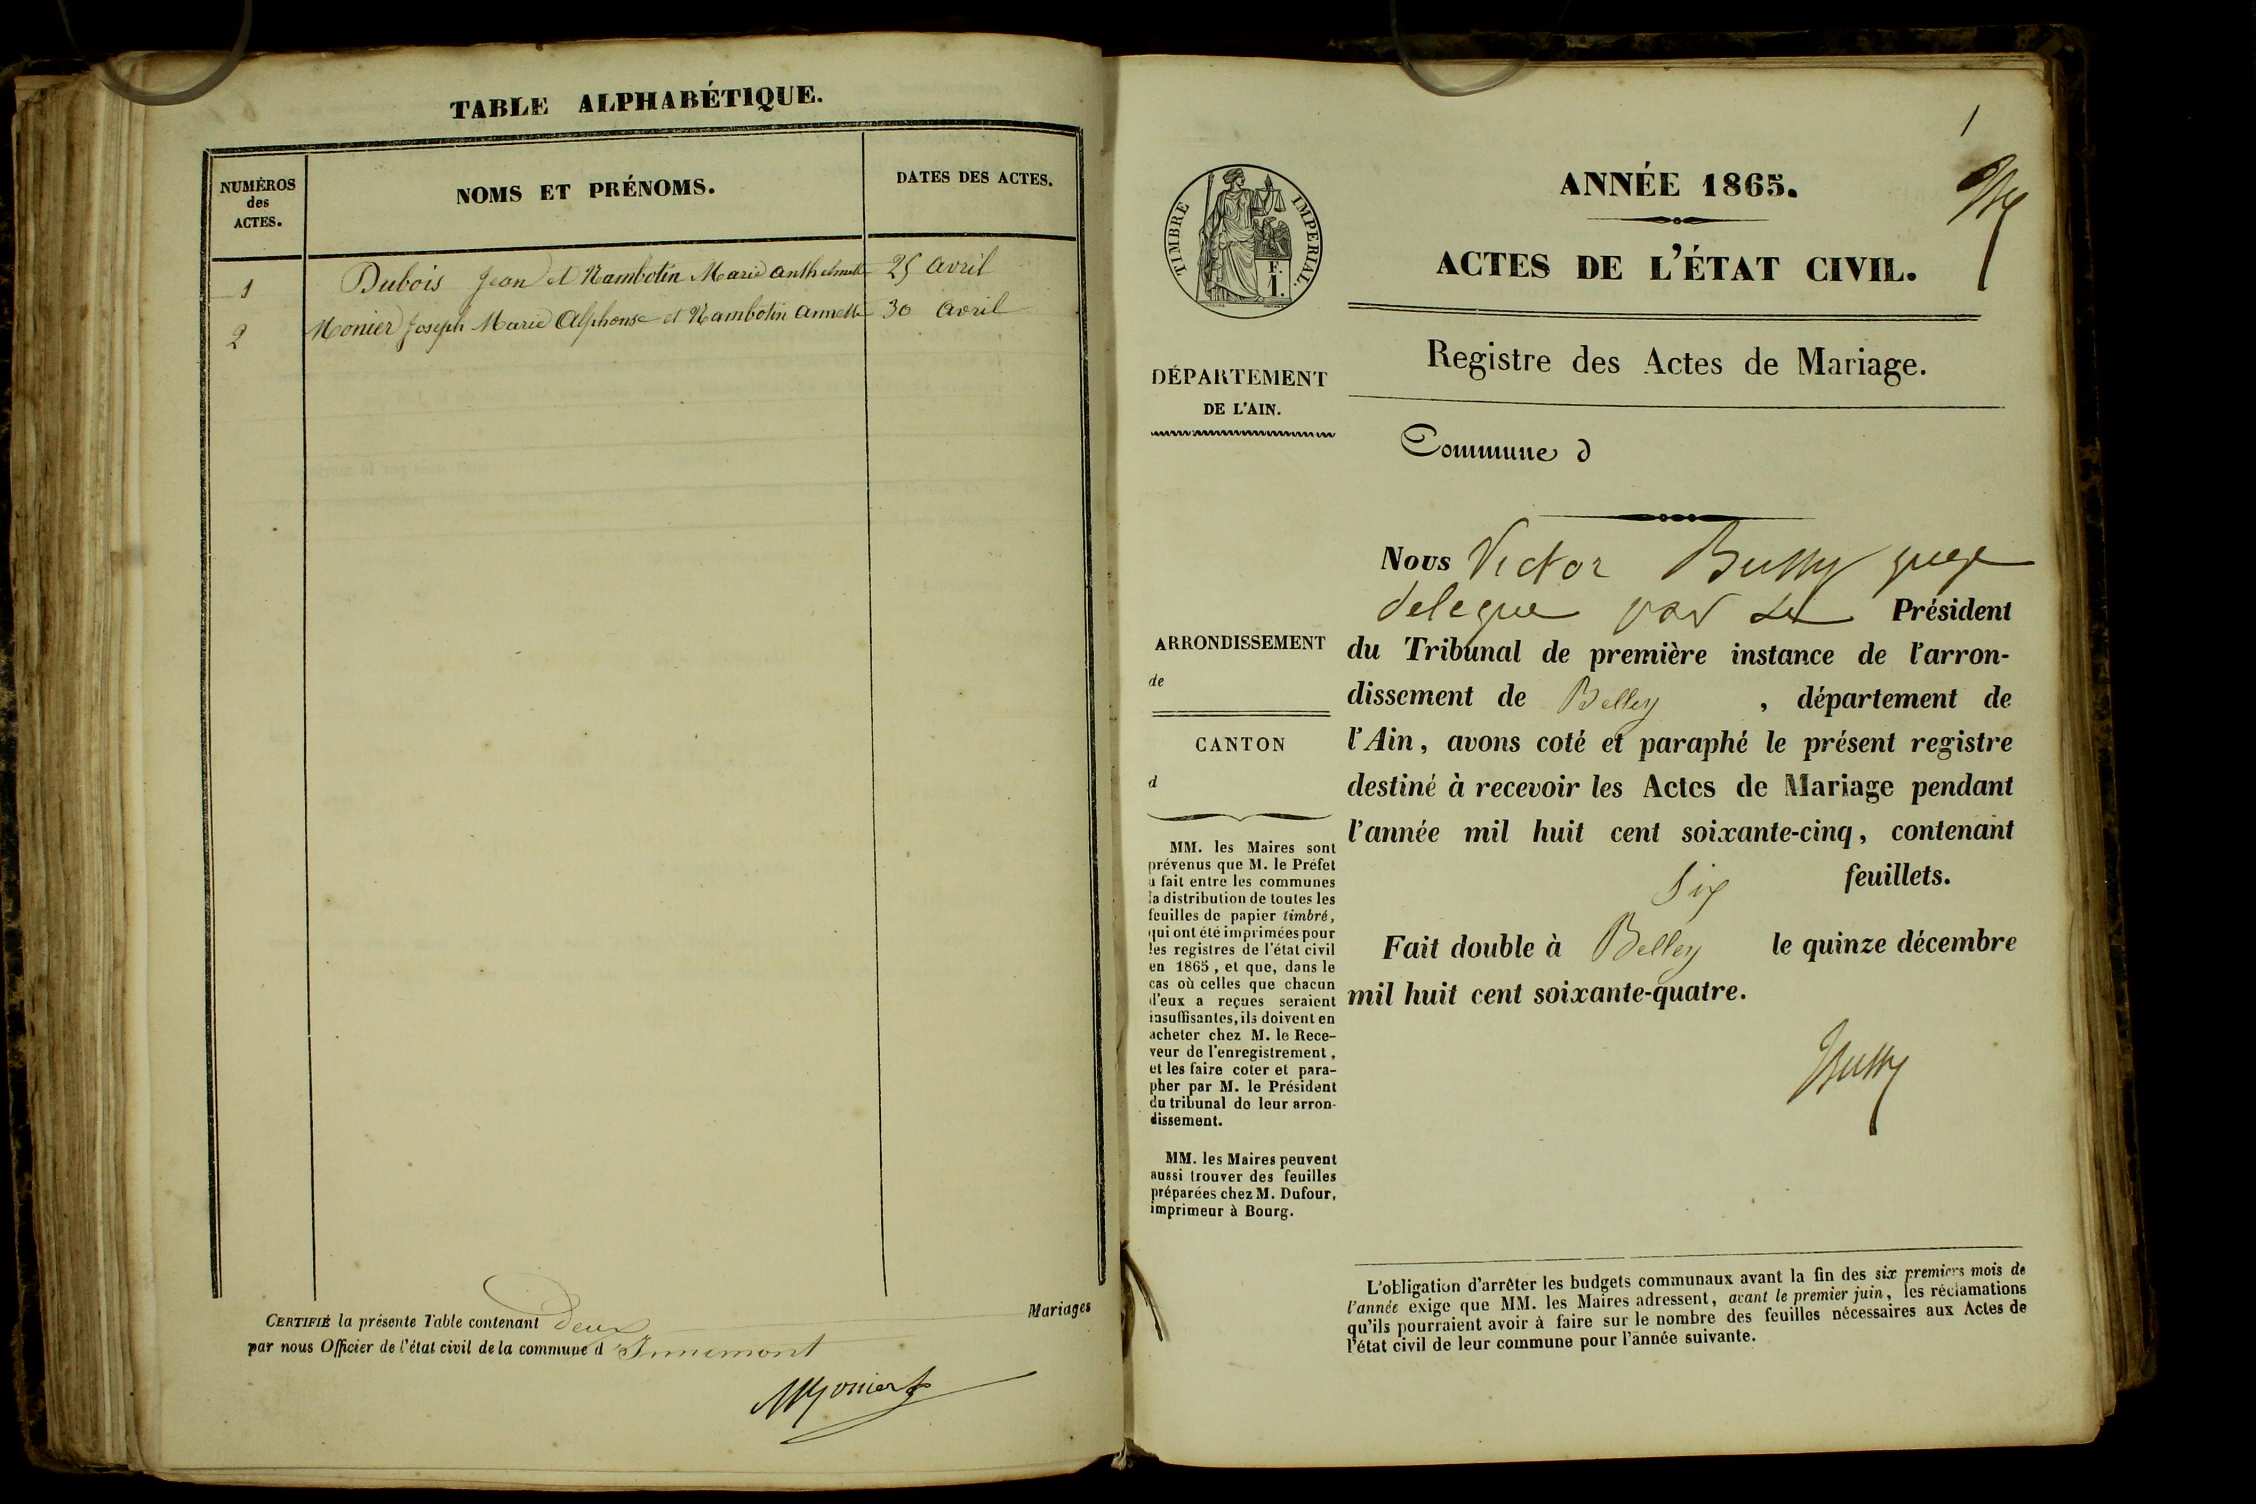 TABLE ALPHABÉTIQUE.
NUMÉROS
des
ACTES.
NOMS ET PRÉNOMS.
DATES DES ACTES.
1 Dubois Jean et Nambotin Marie Anthelmette 25 avril
2 Monier Joseph Marie Alphonse et Nambotin Annette 30 avril
CERTIFIÉ la présente Table contenant deux Mariages
par nous Officier de l'état civil de la commune d'Innimont
Monier
1
TIMBRE IMPERIAL.
F.
1.
DÉPARTEMENT
DE L'AIN.
ARRONDISSEMENT
de
CANTON
d
MM. les Maires sont
prévenus que M. le Préfet
a fait entre les communes
la distribution de toutes les
feuilles de papier timbré,
qui ont été imprimées pour
les registres de l'état civil
en 1865, et que, dans le
cas où celles que chacun
d'eux a reçues seraient
insuffisantes, ils doivent en
acheter chez M. le Rece-
veur de l'enregistrement,
et les faire coter et para-
pher par M. le Président
du tribunal de leur arron-
dissement.
MM. les Maires peuvent
aussi trouver des feuilles
préparées chez M. Dufour,
imprimeur à Bourg.
ANNÉE 1865.
ACTES DE L'ÉTAT CIVIL.
Registre des Actes de Mariage.
Commune d
Nous Victor Bussy juge
delegue par le Président
du Tribunal de première instance de l'arron-
dissement de Belley, département de
l'Ain, avons coté et paraphé le présent registre
destiné à recevoir les Actes de Mariage pendant
l'année mil huit cent soixante-cinq, contenant
six feuillets.
Fait double à Belley le quinze décembre
mil huit cent soixante-quatre.
Bussy
L'obligation d'arrêter les budgets communaux avant la fin des six premiers mois de
l'année exige que MM. les Maires adressent, avant le premier juin, les réclamations
qu'ils pourraient avoir à faire sur le nombre des feuilles nécessaires aux Actes de
l'état civil de leur commune pour l'année suivante.